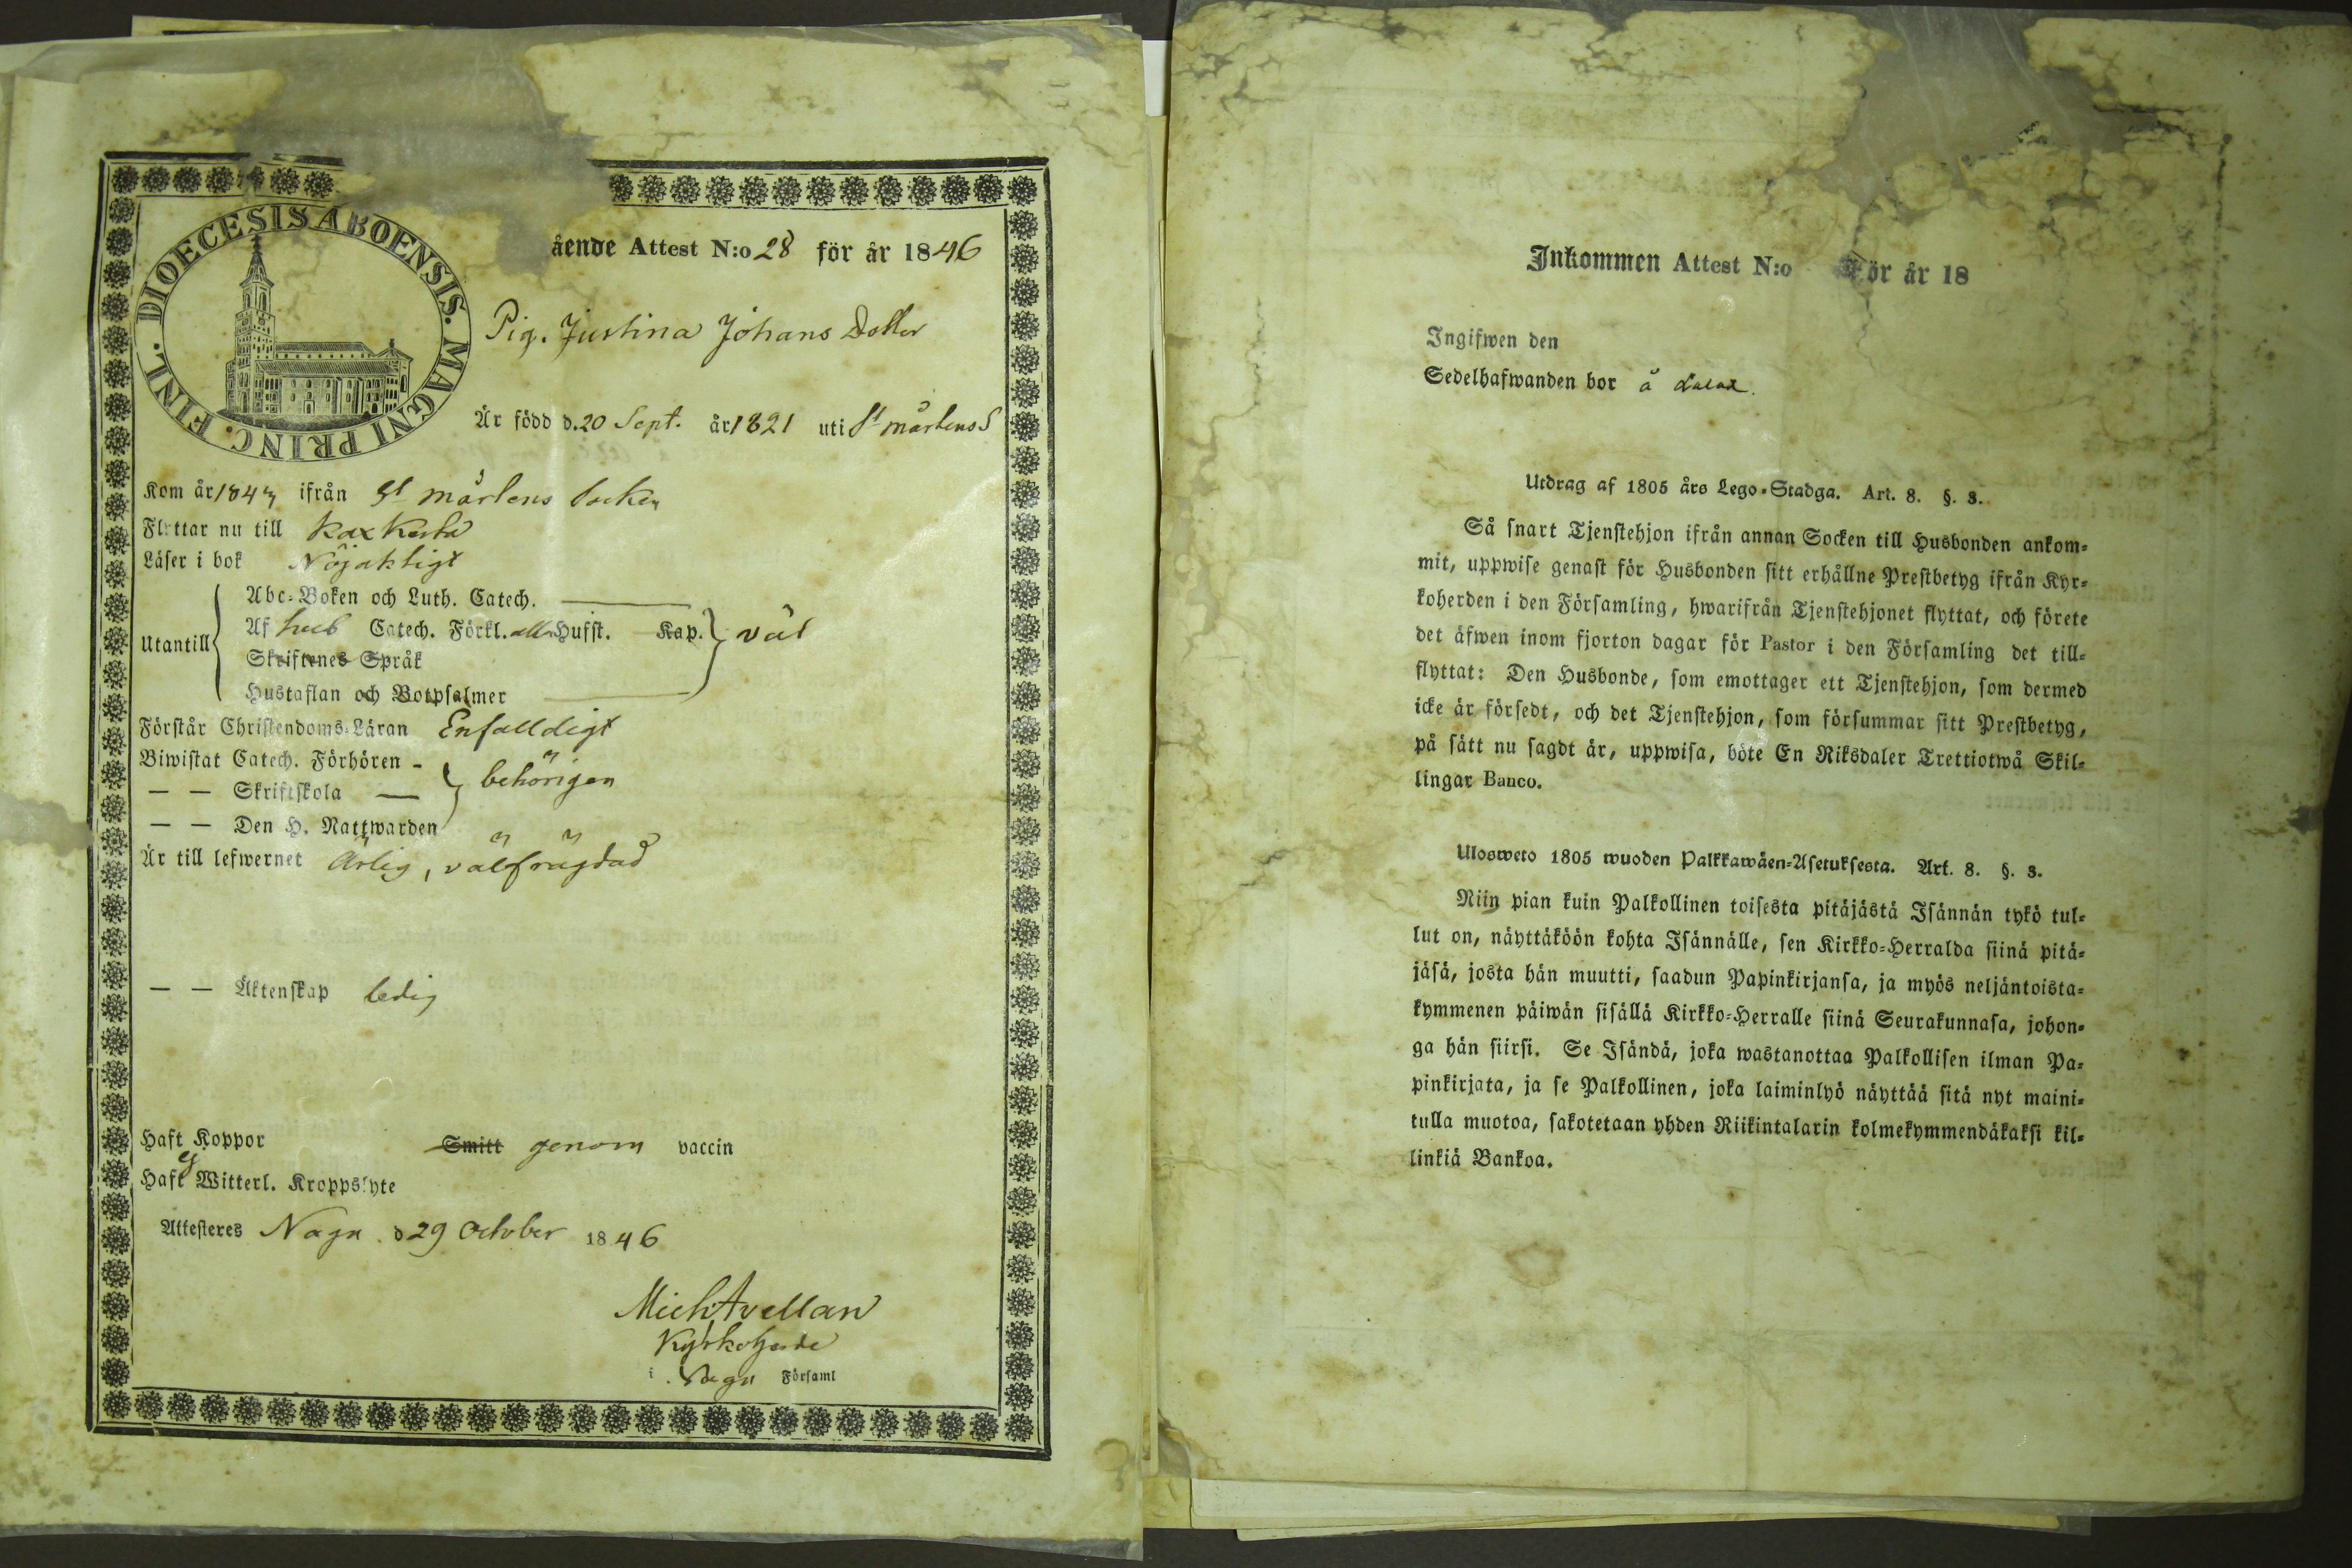 DIOECESIS ABOENSIS. MAGNI PRINC. FINL.
ående Attest N:o 28 för år 1846
Pig. Justina Johans Dotter
Är född d. 20 Sept. år 1821 uti St mårtens S
Kom år 1843 ifrån St mårtens Socken
Flyttar nu till
Läser i bok Nöjaktigt
Utantill
Abc-Boken och Luth. Catech.
Af Catech. Förkl. Husst. Kap. väl
Skriftenes Språk
Hustaflan och Botpsalmer
Förstår Christendoms-Läran Enfalldigt
Biwistat Catech. Förhören - behörigen
— — Skriftskola —
— — Den H. Nattwarden
Är till lefwernet ärlig, välfrägdad
— — Äktenskap ledig
Haft Koppor Smitt genom vaccin
Haft ej Witterl. Kroppslyte
Attesteres Nagu d 29 October 1846
Mich Avellan
Kyrkoherde
i Nagu Församl
Inkommen Attest N:o för år 18
Ingifwen den
Sedelhafwanden bor å
Utdrag af 1805 års Lego-Stadga. Art. 8. §. 3.
Så snart Tjenstehjon ifrån annan Socken till Husbonden ankom-
mit, uppwise genast för Husbonden sitt erhållne Prestbetyg ifrån Kyr-
koherden i den Församling, hwarifrån Tjenstehjonet flyttat, och förete
det äfwen inom fjorton dagar för Pastor i den Församling det till-
flyttat: Den Husbonde, som emottager ett Tjenstehjon, som dermed
icke är försedt, och det Tjenstehjon, som försummar sitt Prestbetyg,
på sätt nu sagdt är, uppwisa, böte En Riksdaler Trettiotwå Skil-
lingar Banco.
Ulosweto 1805 wuoden Palkkawäen-Asetuksesta. Art. 8. §. 3.
Niin pian kuin Palkollinen toisesta pitäjästä Isännän tykö tul-
lut on, näyttäköön kohta Isännälle, sen Kirkko-Herralda siinä pitä-
jäsä, josta hän muutti, saadun Papinkirjansa, ja myös neljäntoista-
kymmenen päiwän sisällä Kirkko-Herralle siinä Seurakunnasa, johon-
ga hän siirsi. Se Isändä, joka wastanottaa Palkollisen ilman Pa-
pinkirjata, ja se Palkollinen, joka laiminlyö näyttää sitä nyt maini-
tulla muotoa, sakotetaan yhden Riikintalarin kolmekymmendäkaksi kil-
linkiä Bankoa.